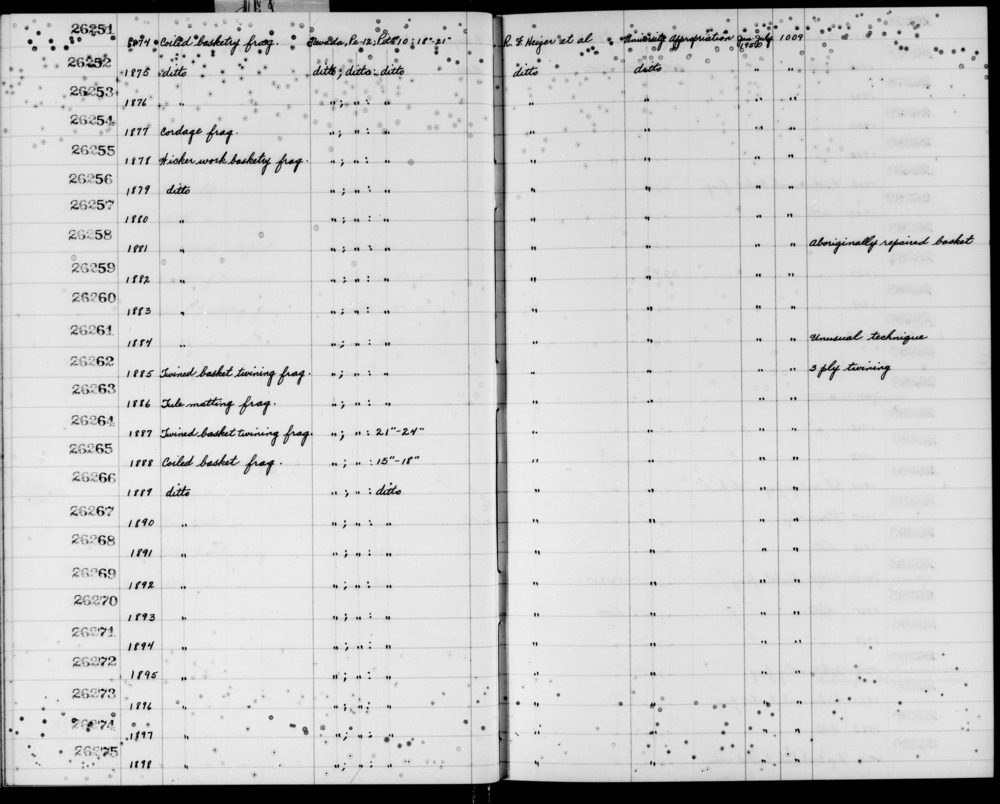 26251 1874 Coiled basketry frag. Nevada, Pe-12; Pit 10: 18"-21" R. F. Heizer et al University Appropriation Jun-July 1950 1009
26252 1875 ditto ditto; ditto: ditto ditto ditto " "
26253 1876 " "; ": " " " " "
26254 1877 Cordage frag. "; ": " " " " "
26255 1878 Wicker work basketry frag. "; ": " " " " "
26256 1879 ditto "; ": " " " " "
26257 1880 " "; ": " " " " "
26258 1881 " "; ": " " " " " Aboriginally repaired basket
26259 1882 " "; ": " " " " "
26260 1883 " "; ": " " " " "
26261 1884 " "; ": " " " " " Unusual technique
26262 1885 Twined basket twining frag. "; ": " " " " " 3 ply twining
26263 1886 Tule matting frag. "; ": " " " " "
26264 1887 Twined basket twining frag. "; ": 21"-24" " " " "
26265 1888 Coiled basket frag. "; ": 15"-18" " " " "
26266 1889 ditto "; ": ditto " " " "
26267 1890 " "; ": " " " " "
26268 1891 " "; ": " " " " "
26269 1892 " "; ": " " " " "
26270 1893 " "; ": " " " " "
26271 1894 " "; ": " " " " "
26272 1895 " "; ": " " " " "
26273 1896 " "; ": " " " " "
26274 1897 " "; ": " " " " "
26275 1898 " "; ": " " " " "